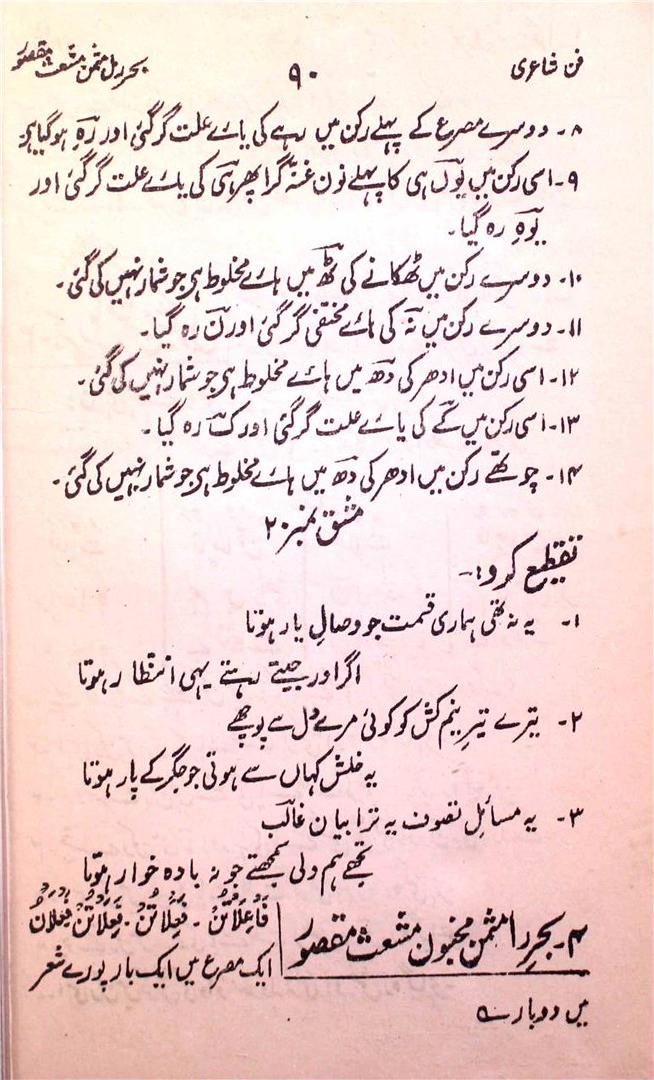 فن شاعری
۹۰
بحر رمل مثمن مشعث مقصور
۸۔ دوسرے مصرع کے پہلے رکن میں رہے کی یائے علت گر گئی اور رَہِ ہو گیا ہی
۹۔ اسی رکن میں یوں ہی کا پہلے نون غنہ گرا پھر ہی کی یائے علت گر گئی اور
یوہِ رہ گیا۔
۱۰۔ دوسرے رکن میں ٹھکانے کی ٹھ میں ہائے مخلوط ہی جو شمار نہیں کی گئی۔
۱۱۔ دوسرے رکن میں نہ کی ہائے مختفی گر گئی اور نَ رہ گیا۔
۱۲۔ اسی رکن میں ادھر کی دھ میں ہائے مخلوط ہی جو شمار نہیں کی گئی۔
۱۳۔ اسی رکن میں کے کی یائے علت گر گئی اور ک رہ گیا۔
۱۴۔ چوتھے رکن میں ادھر کی دھ میں ہائے مخلوط ہی جو شمار نہیں کی گئی۔
مشق نمبر ۲۰
تقطیع کرو:۔
۱۔ یہ نہ تھی ہماری قسمت جو وصالِ یار ہوتا
اگر اور جیتے رہتے یہی انتظار ہوتا
۲۔ تیرے تیرِ نیم کش کو کوئی مرے دل سے پوچھے
یہ خلش کہاں سے ہوتی جو جگر کے پار ہوتا
۳۔ یہ مسائلِ تصوف یہ ترا بیان غالب
تجھے ہم ولی سمجھتے جو نہ بادہ خوار ہوتا
۴۔ بحرِ رمل مثمن مخبون مشعث مقصور
فَاعِلَاتُن۔ فَعِلَاتُن۔ فَعِلَاتُن فَعْلَان
ایک مصرع میں ایک بار پورے شعر
میں دوبار ہے